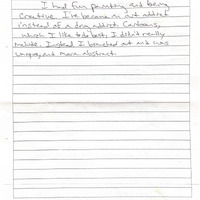 I had fun painting and being
creative. I've became an art addict
instead of a drug addict. Cartoons,
which I like to do best, I didn't really
Instead I at was
unique, and more abstract.